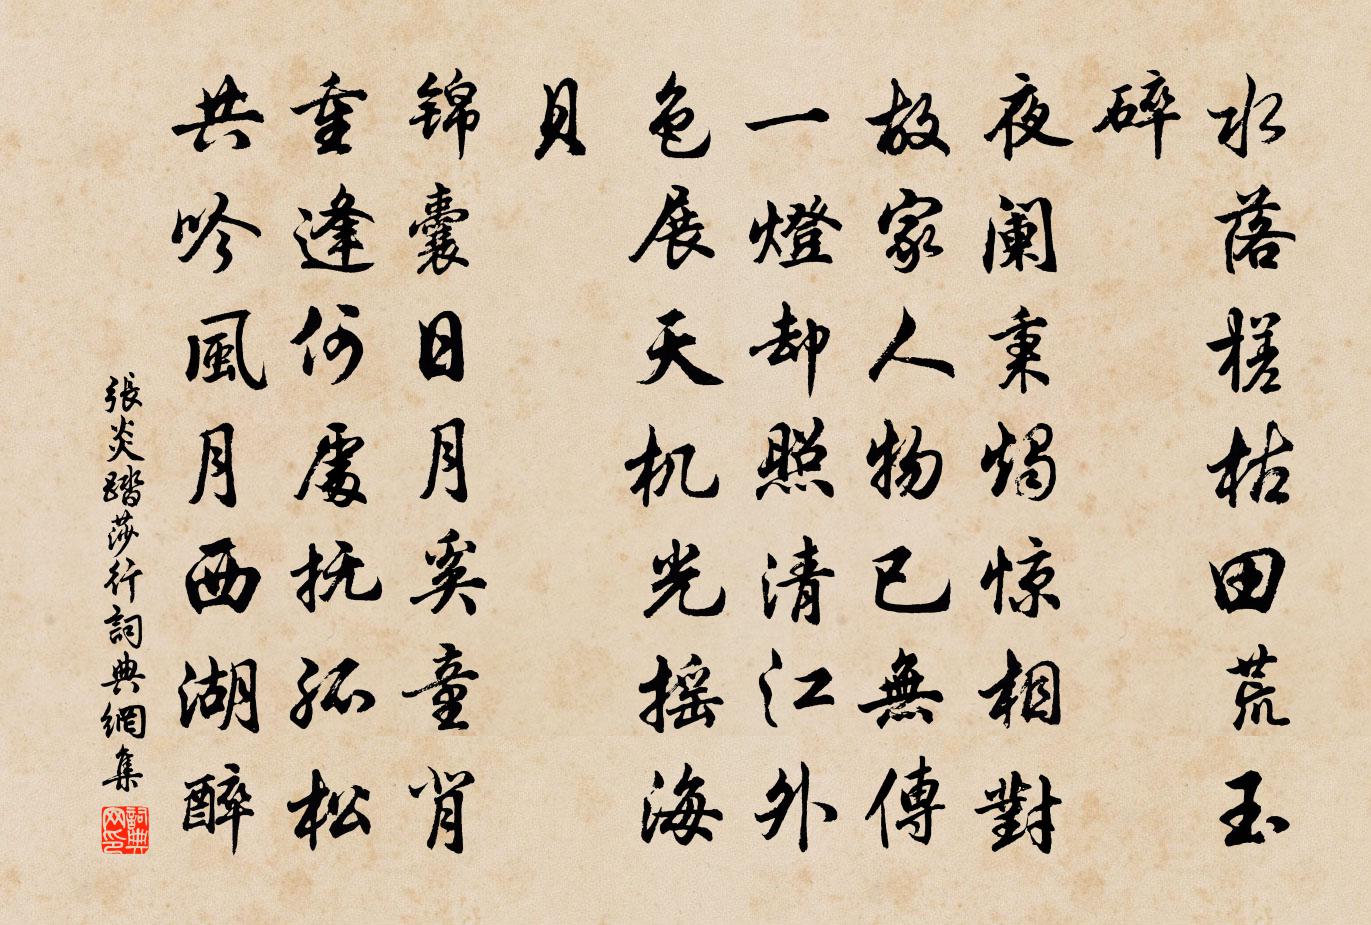 水落槎枯田荒玉
碎
夜阑秉烛惊相對
故家人物已無傳
一燈却照清江外
色展天机光摇海
貝
锦囊日月奚童背
重逢何處抚孤松
共吟風月西湖醉
張炎踏莎行詞典網集
詞典网印